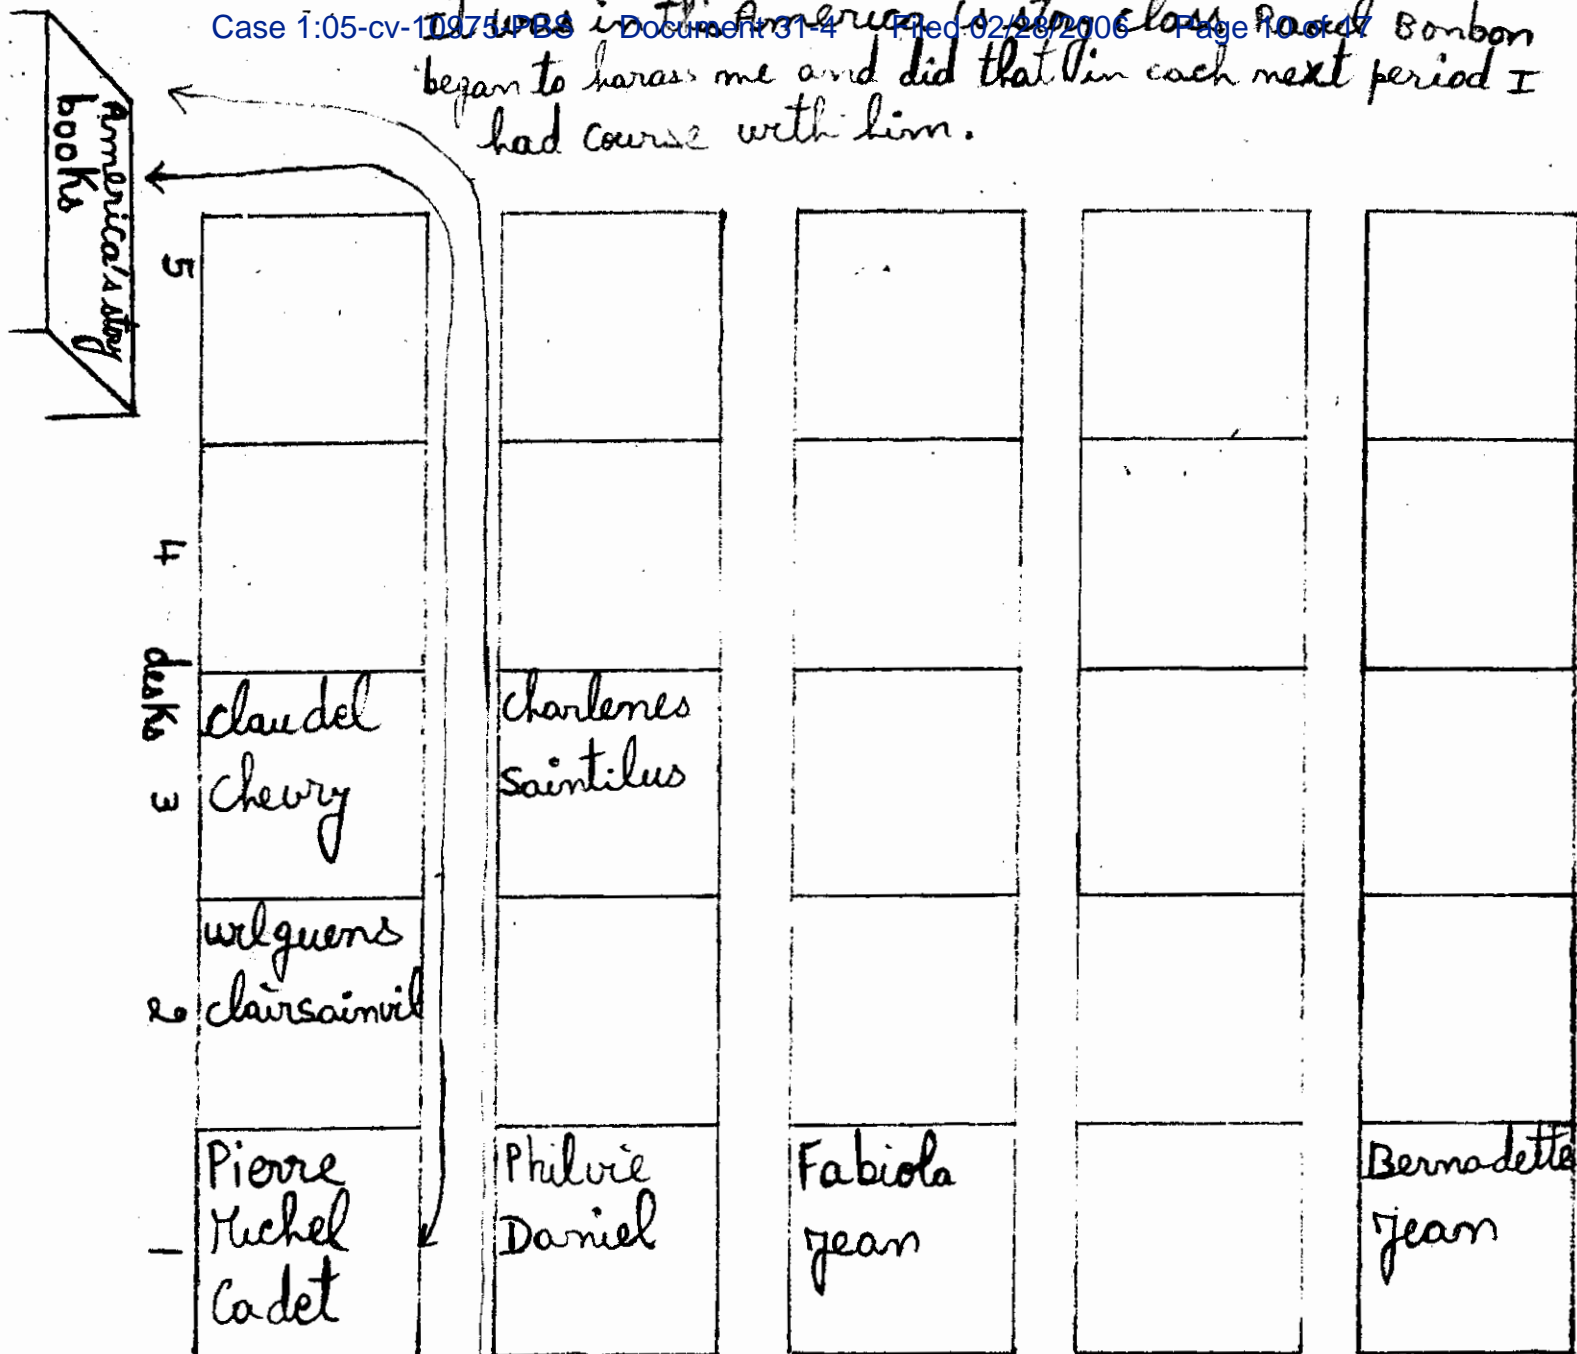 Case 1:05-cv-10975-PBS Document 31-4 Filed 02/28/2006 Page 10 of 17
It was in this America's story class Raoul Bonbon
began to harass me and did that in each next period I
had course with him.
America's story
books
5
4
desks
3
2
1
claudel
Chevry
charlenes
saintilus
wilguens
clairsainvil
Pierre
Michel
Cadet
Philvie
Daniel
Fabiola
jean
Bernadette
jean